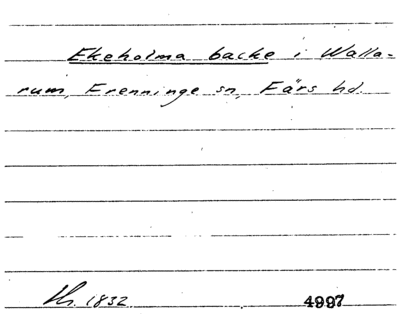 Ekeholma backe i Walla-
rum, Frenninge sn, Färs hd.
1832
4997